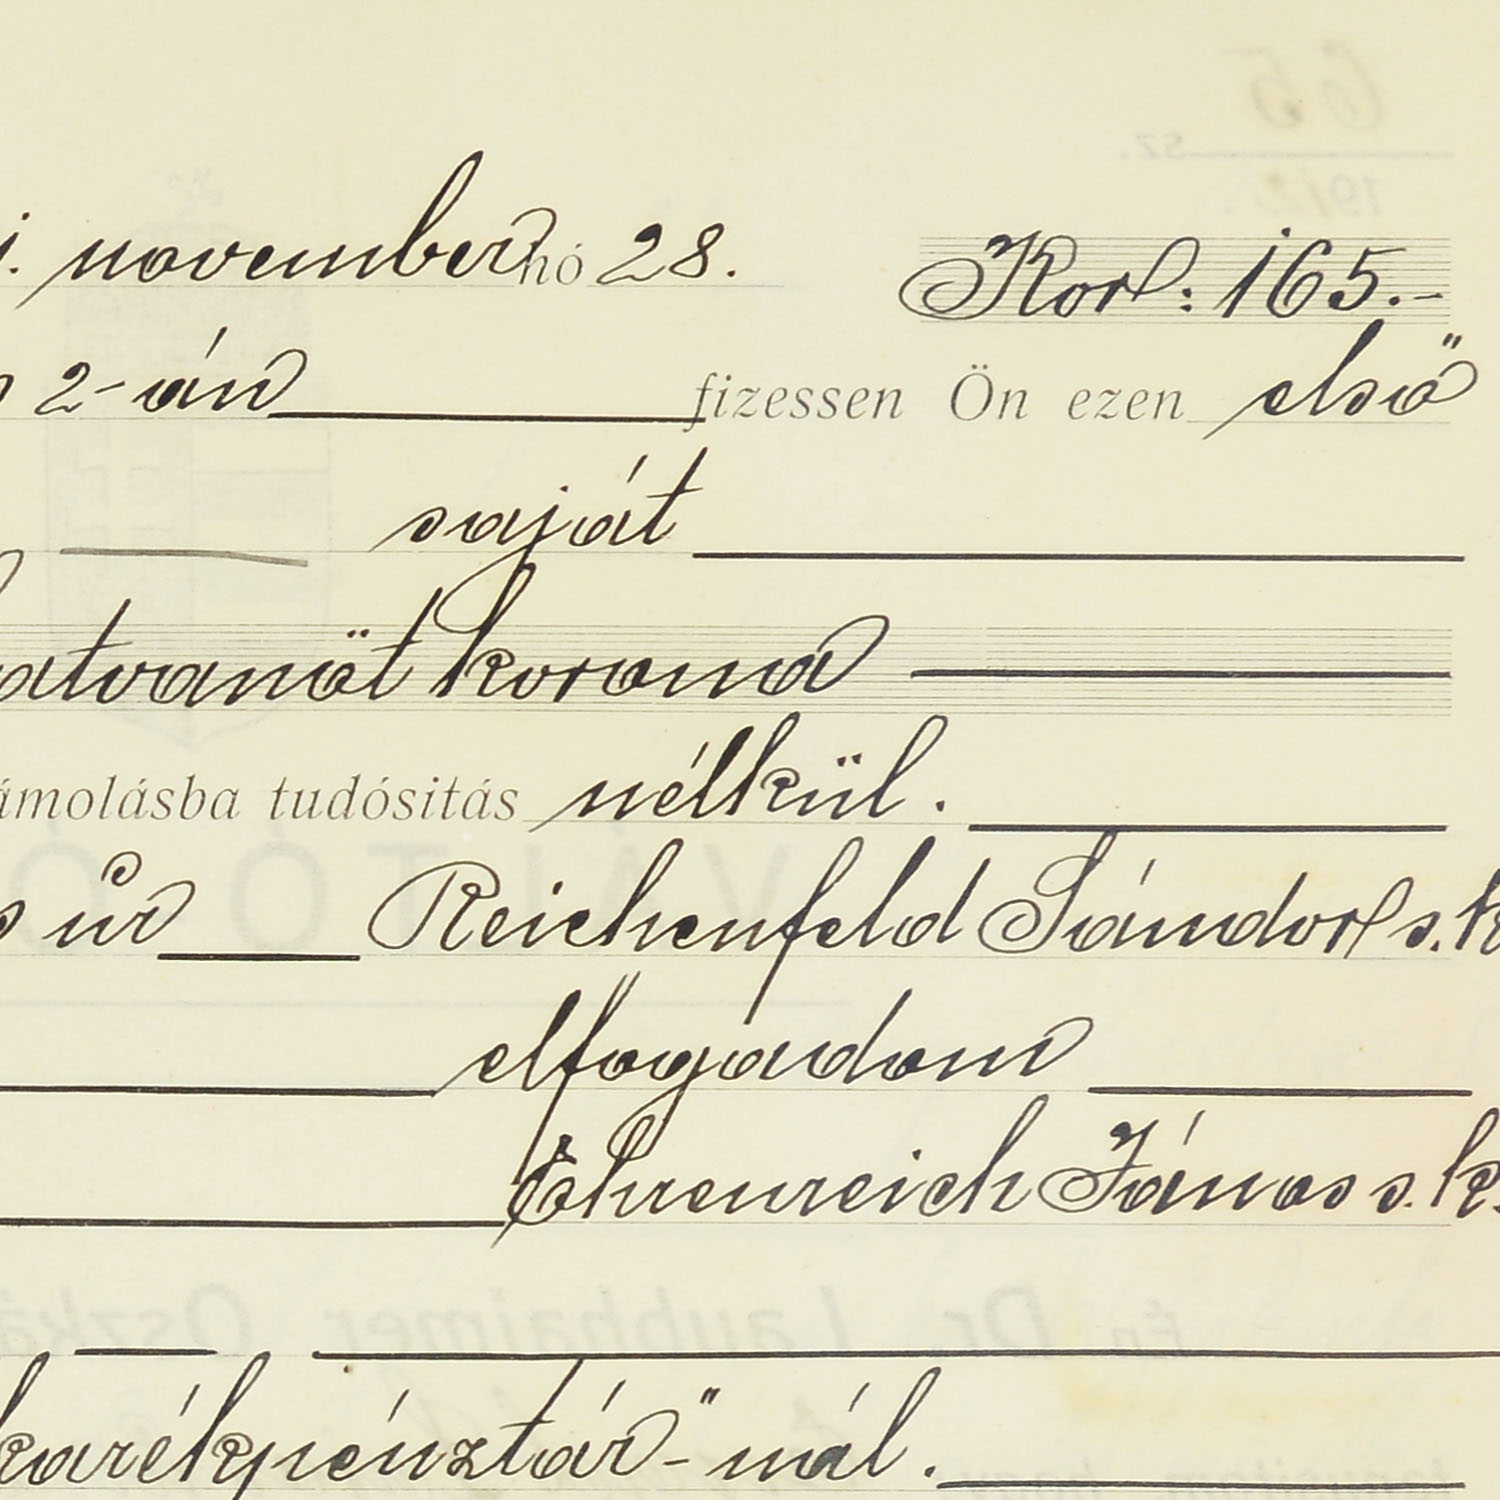 november hó 28. Kor: 165.-
2-án fizessen Ön ezen első
saját
hatvanöt korona
ámolásba tudósitás nélkül.
úr Reichenfeld Sándor s.k
elfogadom
Ehrenreich János s.k.
karékpénztár"-nál.